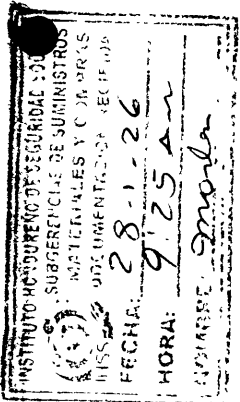 INSTITUTO HONDUREÑO DE SEGURIDAD
SUBGERENCIA DE SUMINISTROS
MATERIALES Y COMPRAS
IHSS DOCUMENTACION RECIBIDA
FECHA: 28-1-26
HORA: 9:25 am
NOMBRE: